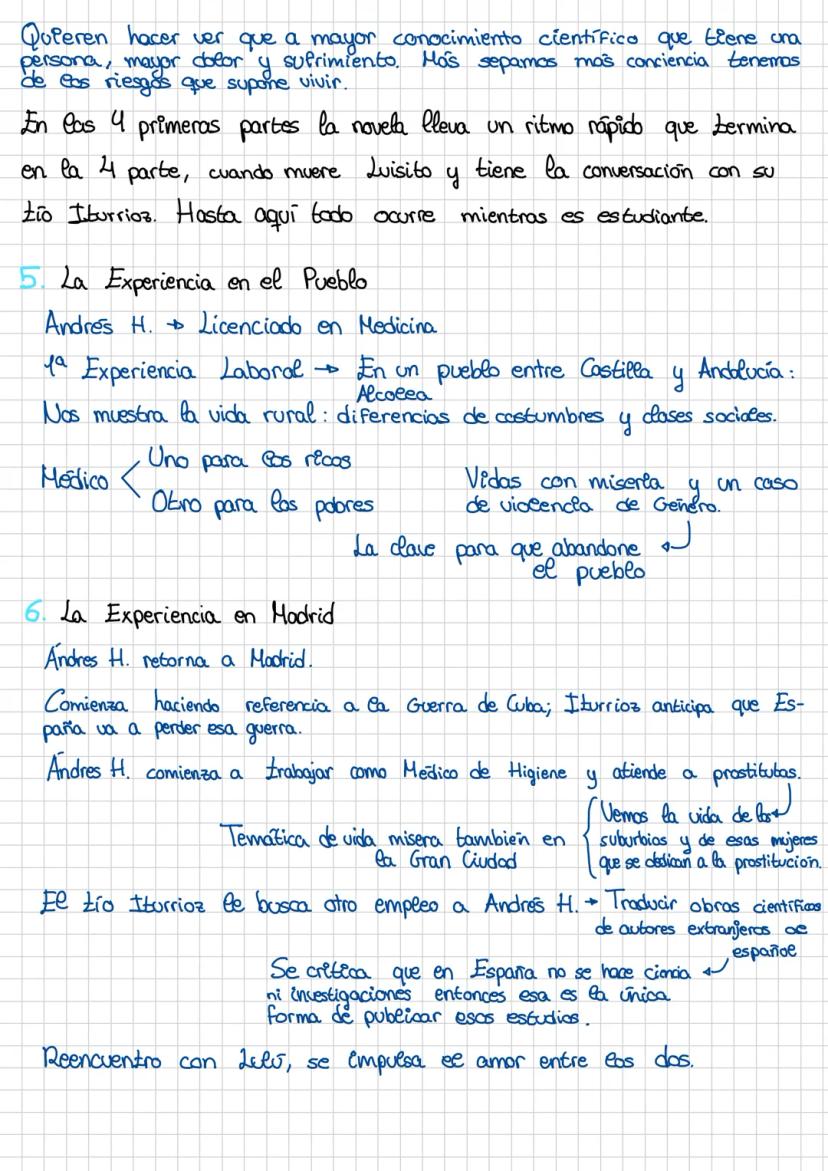 Quieren hacer ver que a mayor conocimiento científico que tiene una
persona, mayor dolor y sufrimiento. Más sepamos más conciencia tenemos
de los riesgos que supone vivir.
En las 4 primeras partes la novela lleva un ritmo rápido que termina
en la 4 parte, cuando muere Luisito y tiene la conversación con su
tío Iturrioz. Hasta aquí todo ocurre mientras es estudiante.
5. La Experiencia en el Pueblo
Andrés H. → Licenciado en Medicina
1ª Experiencia Laboral → En un pueblo entre Castilla y Andalucía:
Alcolea
Nos muestra la vida rural: diferencias de costumbres y clases sociales.
Médico < Uno para los ricos
Otro para los pobres
Vidas con miseria y un caso
de violencia de Género.
La clave para que abandone
el pueblo
6. La Experiencia en Madrid
Ándres H. retorna a Madrid.
Comienza haciendo referencia a la Guerra de Cuba; Iturrioz anticipa que Es-
paña va a perder esa guerra.
Ándres H. comienza a trabajar como Médico de Higiene y atiende a prostitutas.
Temática de vida mísera también en
la Gran Ciudad
Vemos la vida de los
suburbios y de esas mujeres
que se dedican a la prostitución.
El tío Iturrioz le busca otro empleo a Andrés H. → Traducir obras científicas
de autores extranjeros al
español
Se critica que en España no se hace ciencia
ni investigaciones entonces esa es la única
forma de publicar esos estudios.
Reencuentro con Lulú, se impulsa el amor entre los dos.